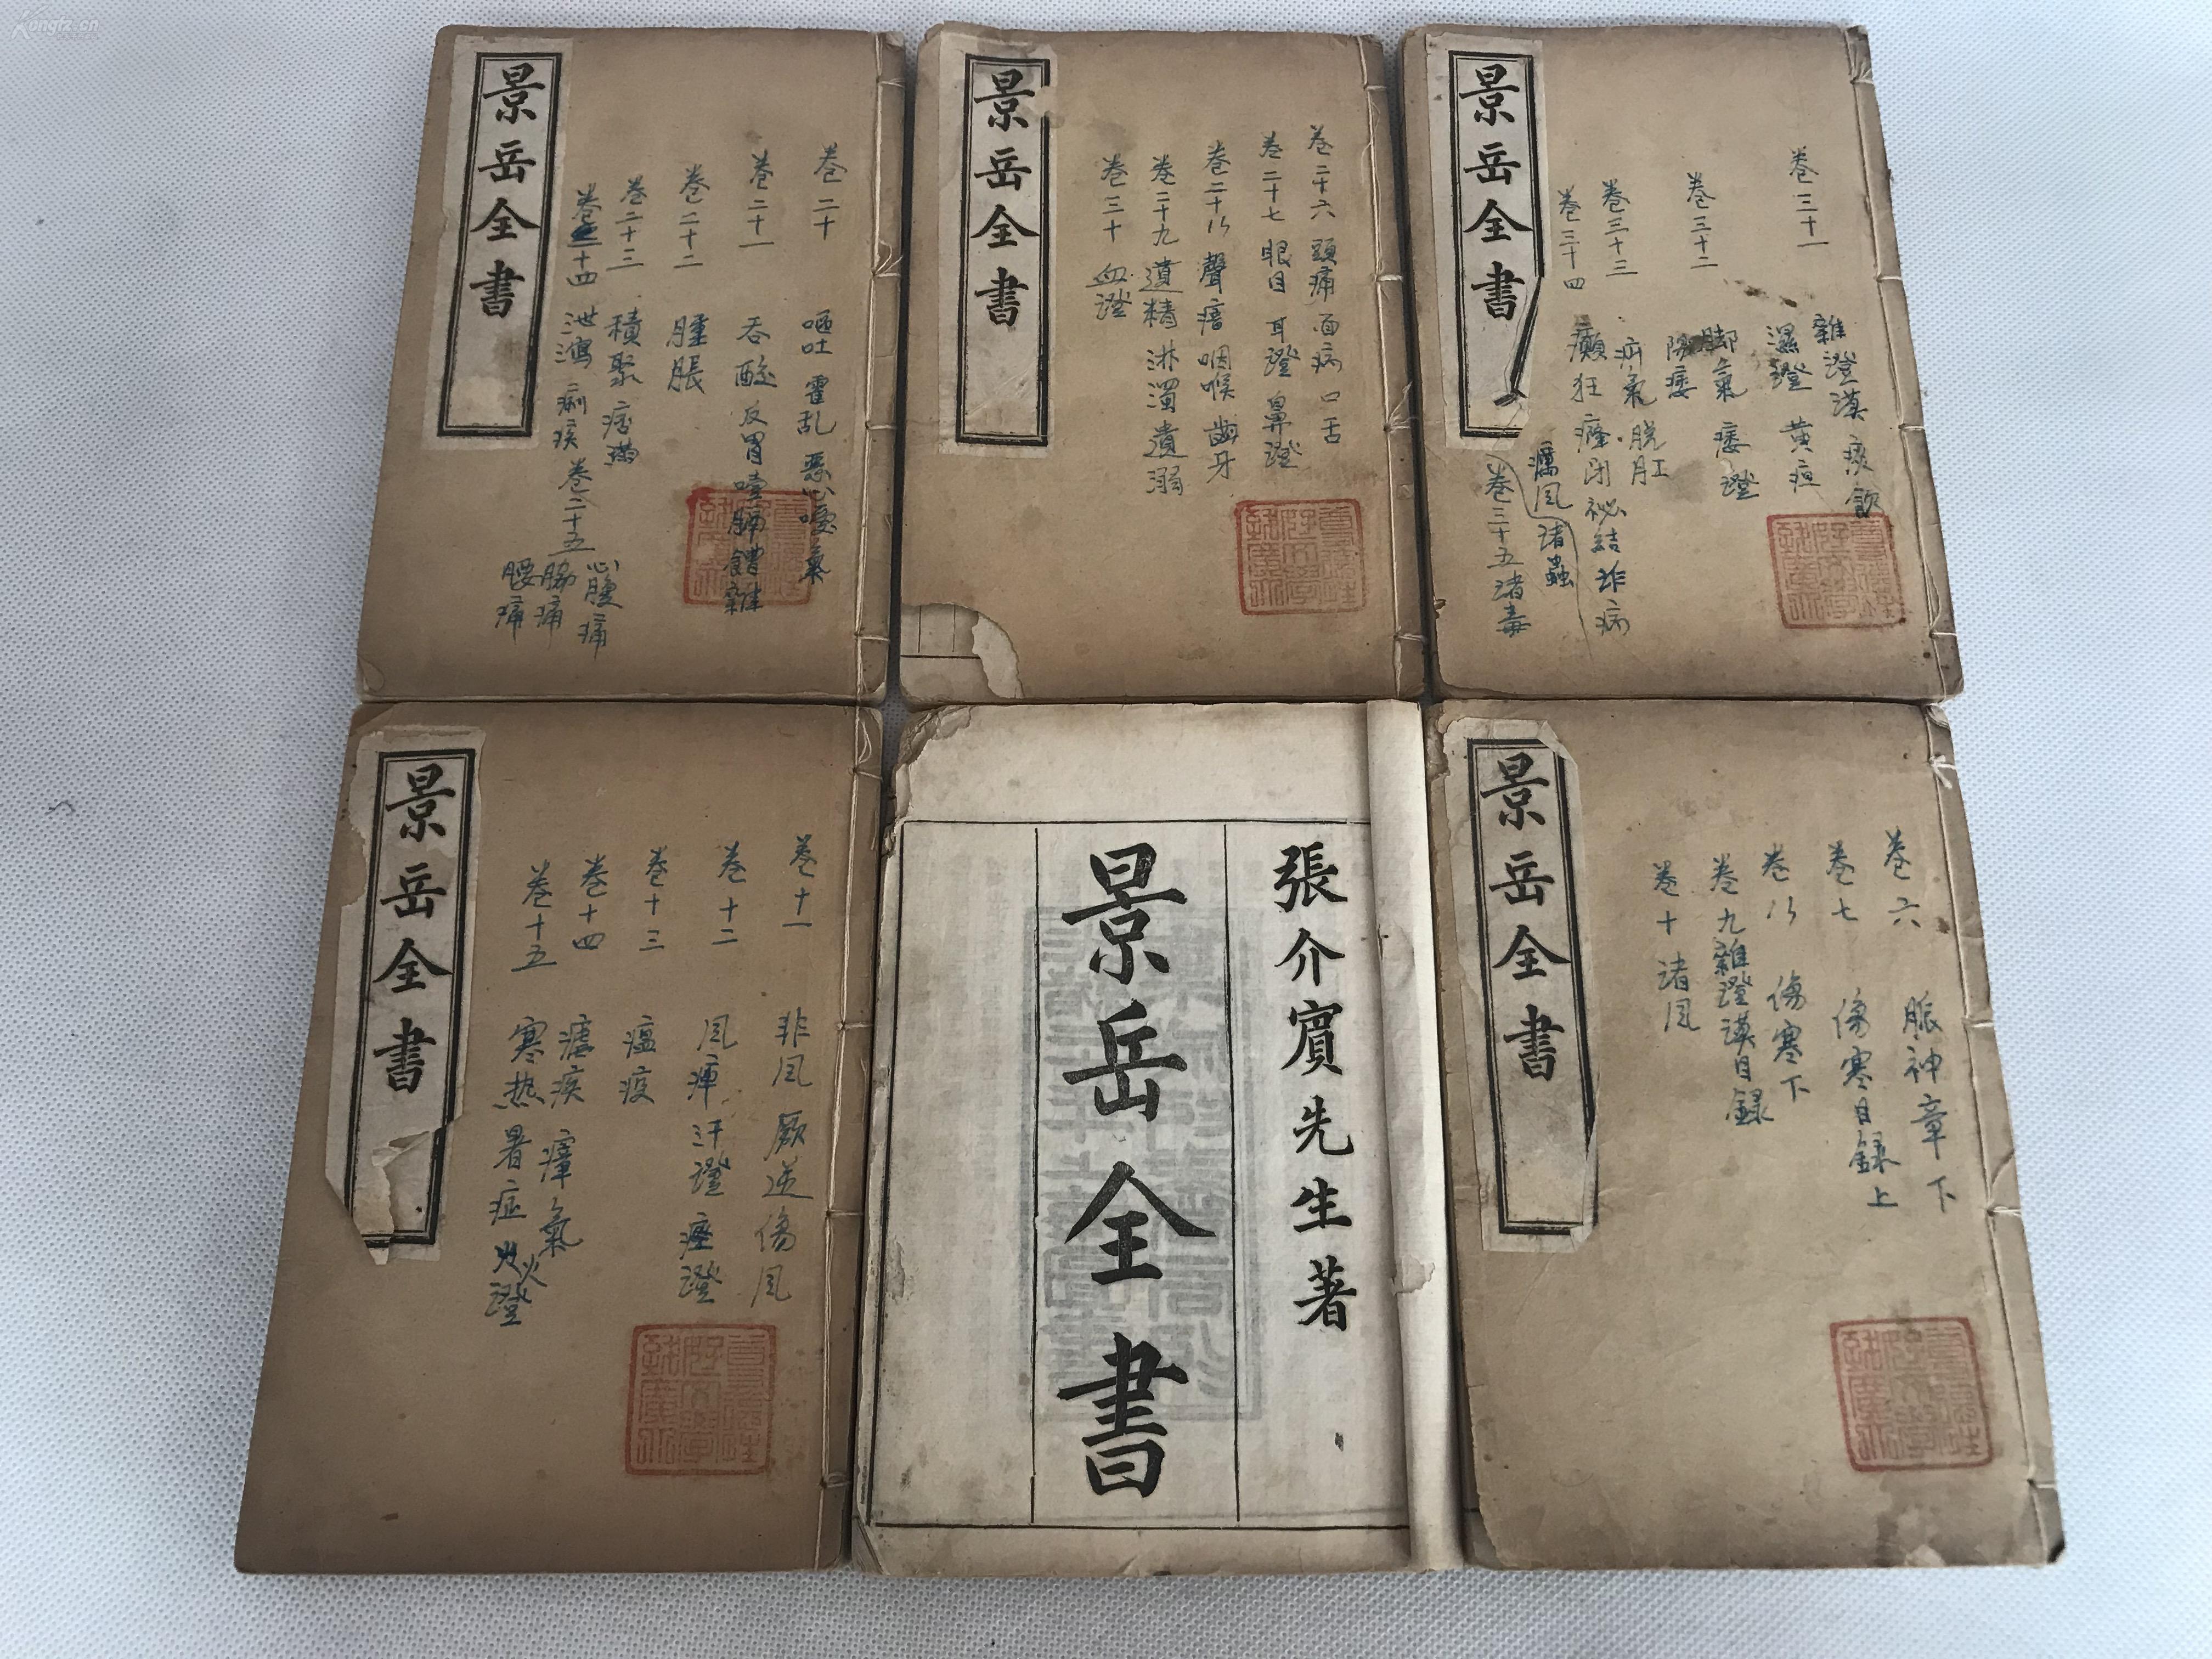 Kongfz.cn
景岳全書
卷二十 嘔吐 霍乱 惡心噯氣
卷二十一 吞酸 反胃 噎膈 饐雜
卷二十二 腫脹
卷二十三 積聚 痞滿
卷二十四 泄瀉 痢疾
卷二十五 心腹痛
脇痛
腰痛
景岳全書
卷二十六 頭痛 面病 口舌
卷二十七 眼目 耳證 鼻證
卷二十八 聲瘖 咽喉 齒牙
卷二十九 遺精 淋濁 遺溺
卷三十 血證
景岳全書
卷三十一 雜證謨 痰飲
濕證 黄疸
卷三十二 脚氣 痿證
陽痿
卷三十三 疝氣 脱肛
卷三十四 癲狂 癃闭 祕結 詐病
癘風 诸蟲
卷三十五 诸毒
景岳全書
卷十一 非风 厥逆 傷风
卷十二 风痺 汗證 痙證
卷十三 瘟疫
卷十四 瘧疾 瘴氣
卷十五 寒热 暑症 火證
張介賓先生著
景岳全書
景岳全書
卷六 脈神章下
卷七 傷寒目録上
卷八 傷寒下
卷九 雜證谟目録
卷十 诸风